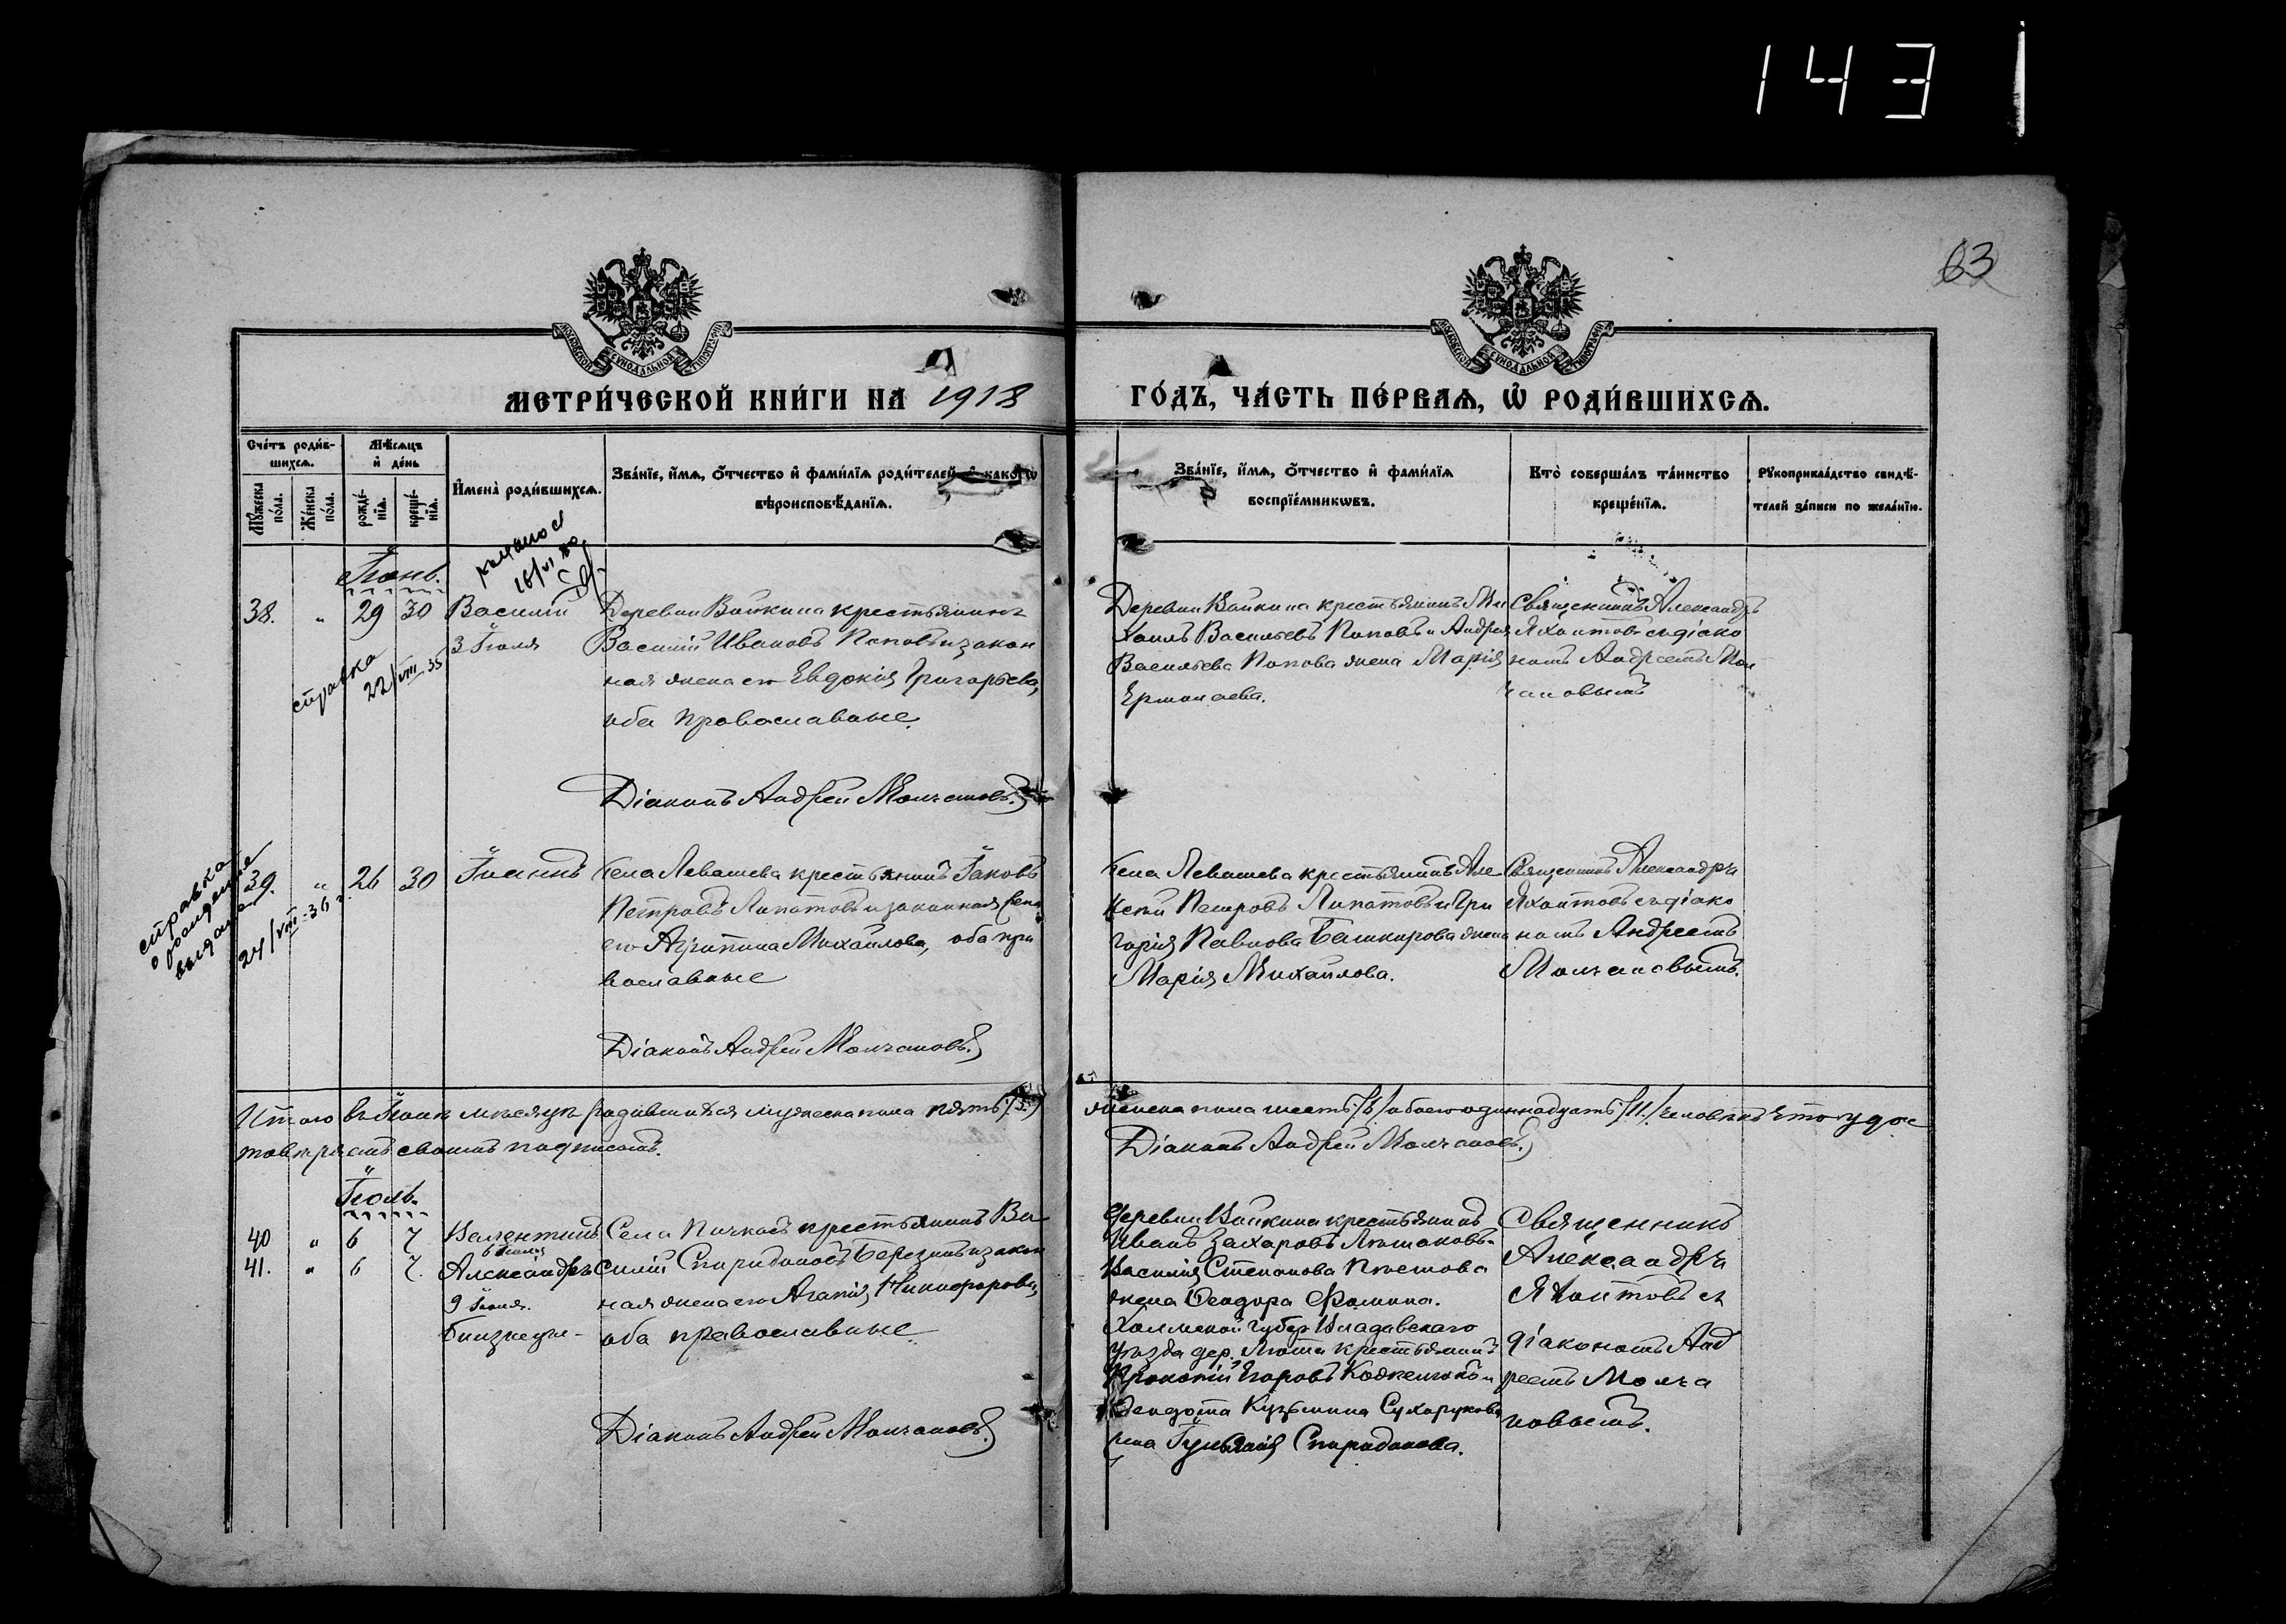 143 1
63
МОСКОВСКОЙ СѴНОДАЛЬНОЙ ТІПОГРАФІИ
МОСКОВСКОЙ СѴНОДАЛЬНОЙ ТІПОГРАФІИ
МЕТРИ́ЧЕСКОЙ КНИ́ГИ НА 1918
ГО́ДЪ, ЧА́СТЬ ПЕ́РВАѦ, Ѡ҆ РОДИ́ВШИХСѦ.
Сче́тъ роди́в-
шихсѧ.
Мѣ́сѧцъ
и҆ де́нь
Мꙋ́жеска по́ла.
Же́нска по́ла.
рожде́-
нїѧ.
креще́-
нїѧ.
И҆мена̀ роди́вшихсѧ.
Зва́нїе, и҆́мѧ, ѻ҆́тчество и҆ фами́лїѧ роди́телей и҆ како́гѡ
вѣроисповѣ́данїѧ.
Зва́нїе, и҆́мѧ, ѻ҆́тчество и҆ фами́лїѧ
воспрїе́мникѡвъ.
Кто̀ соверша́лъ та́инство
креще́нїѧ.
Рꙋкоприкла́дство свидѣ́-
телей за́писи по жела́нїю.
Іюнь.
38. " 29 30 Василій
3 Іюля
справка
22/VIII 35
Деревни Вайкина крестьянинъ
Василій Ивановъ Поповъ и закон
ная жена его Евдокія Григорьева,
оба православные.
Діаконъ Андрей Молчановъ.
Деревни Вайкина крестьянинъ Ми
хаилъ Васильевъ Поповъ и Андрея
Васильева Попова жена Марія
Ермолаева.
Священникъ Александръ
Яхонтовъ съ діако
номъ Андреемъ Мол
чановымъ
справка
о рождении
выдана
24/VIII-36 г.
39. " 26 30 Іоаннъ
Села Левашева крестьянинъ Іаковъ
Петровъ Липатовъ и законная жена
его Агрипина Михайлова, оба пра
вославные
Діаконъ Андрей Молчановъ.
Села Левашева крестьянинъ Але
ксѣй Петровъ Липатовъ и Гри
горія Павлова Башкирова жена
Марія Михайлова.
Священникъ Александръ
Яхонтовъ съ діако
номъ Андреемъ
Молчановымъ.
Итого въ Іюнѣ мѣсяцѣ родившихся мужеска пола пять /5/
женска пола шесть /6/ обоего одиннадцать /11/ человѣкъ что удос
товѣряемъ своимъ подписомъ.
Діаконъ Андрей Молчановъ.
Іюль.
40 " 6 7 Валентинъ
6 Іюля
41. " 6 7. Александръ
9 Іюля.
близнецы-
Села Пичкасъ крестьянинъ Ва
силій Спиридоновъ Березинъ и закон
ная жена его Агапія Никифорова,
оба православные.
Діаконъ Андрей Молчановъ.
Деревни Вайкина крестьянинъ
Иванъ Захаровъ
Василія Степанова
жена Ѳеодора Фомина.
Холмской губер Владавскаго
уѣзда дер. крестьянинъ
Прокопій Егоровъ и
Ѳеодота Кузьмина Сухорукова
жена Спиридонова.
Священникъ
Александръ
Яхонтовъ съ
діакономъ Анд
реемъ Молча
новымъ.